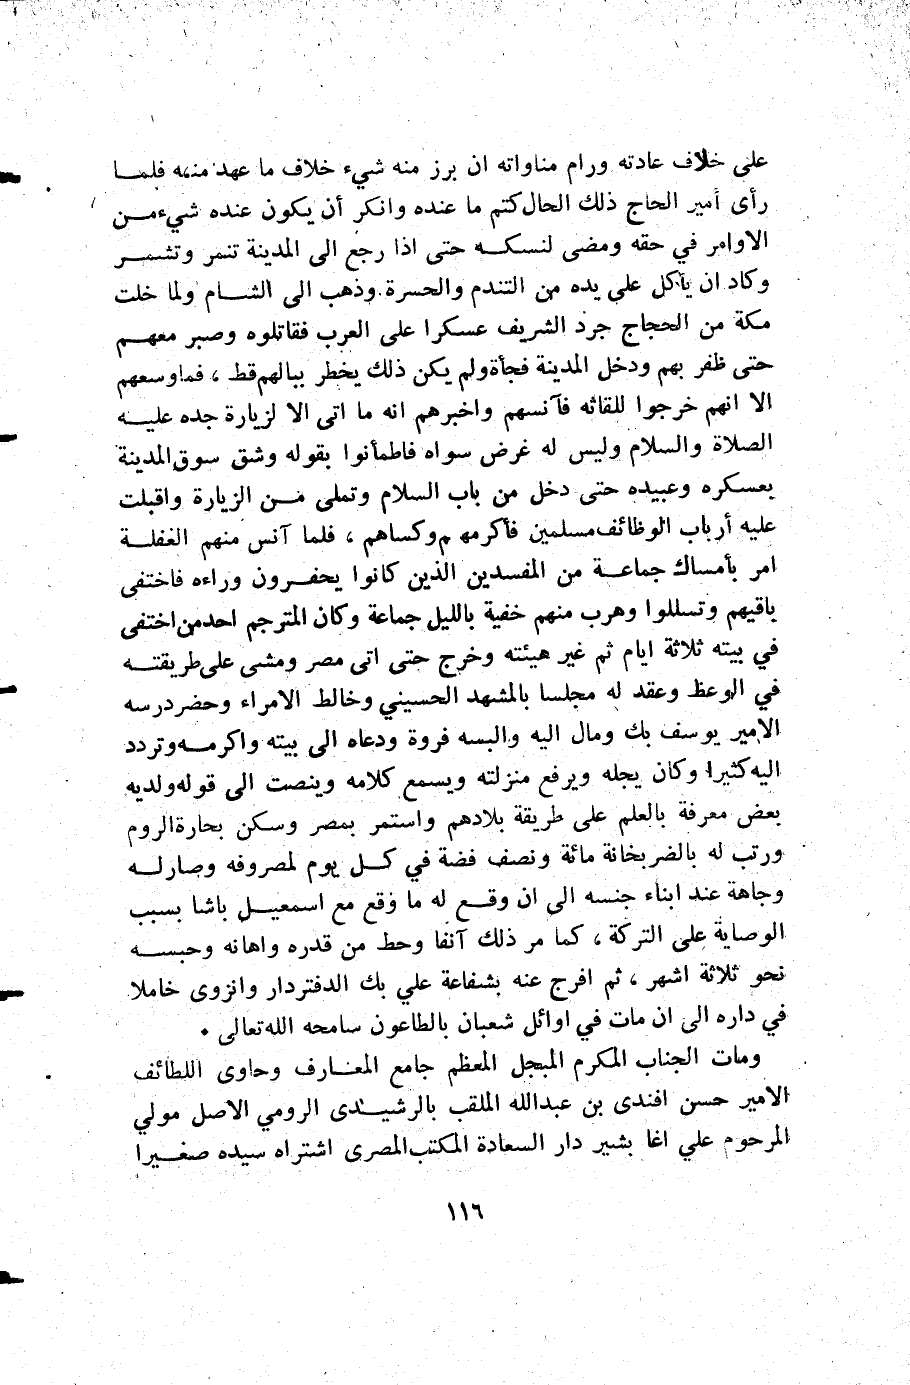 على خلاف عادته ورام مناواته ان برز منه شيء خلاف ما عهد منه فلمــا
رأى أمير الحاج ذلك الحال كتم ما عنده وانكر أن يكون عنده شيء مــن
الاوامر في حقه ومضى لنسكــه حتى اذا رجع الى المدينة تنمر وتشمــر
وكاد ان يأكل على يده من التندم والحسرة وذهب الى الشــام ولما خلت
مكة من الحجاج جرد الشريف عسكرا على العرب فقاتلوه وصبر معهــم
حتى ظفر بهم ودخل المدينة فجأة ولم يكن ذلك يخطر ببالهم قط ، فما وسعهم
الا انهم خرجوا للقائه فآنسهم واخبرهم انه ما اتى الا لزيارة جده عليــه
الصلاة والسلام وليس له غرض سواه فاطمأنوا بقوله وشق سوق المدينة
بعسكره وعبيده حتى دخل من باب السلام وتملى مــن الزيارة واقبلت
عليه أرباب الوظائف مسلمين فأكرمهم وكساهم ، فلما آنس منهم الغفلــة
امر بأمساك جماعــة من المفسدين الذين كانوا يحفــرون وراءه فاختفى
باقيهم وتسللوا وهرب منهم خفية بالليل جماعة وكان المترجم احد من اختفى
في بيته ثلاثة ايام ثم غير هيئته وخرج حتى اتى مصر ومشى على طريقتــه
في الوعظ وعقد له مجلسا بالمشهد الحسيني وخالط الامراء وحضر درسه
الامير يوسف بك ومال اليه والبسه فروة ودعاه الى بيته واكرمــه وتردد
اليه كثيرا وكان يجله ويرفع منزلته ويسمع كلامه وينصت الى قوله ولديه
بعض معرفة بالعلم على طريقة بلادهم واستمر بمصر وسكن بحارة الروم
ورتب له بالضربخانة مائة ونصف فضة في كــل يوم لمصروفه وصار لــه
وجاهة عند ابناء جنسه الى ان وقــع له ما وقع مع اسمعيــل باشا بسبب
الوصاية على التركة ، كما مر ذلك آنفا وحط من قدره واهانه وحبســه
نحو ثلاثة اشهر ، ثم افرج عنه بشفاعة علي بك الدفتردار وانزوى خاملا
في داره الى ان مات في اوائل شعبان بالطاعون سامحه الله تعالى .
ومات الجناب المكرم المبجل المعظم جامع المعــارف وحاوى اللطائف
الامير حسن افندى بن عبدالله الملقب بالرشيــدى الرومي الاصل مولي
المرحوم علي اغا بشير دار السعادة المكتب المصرى اشتراه سيده صغــيرا
١١٦